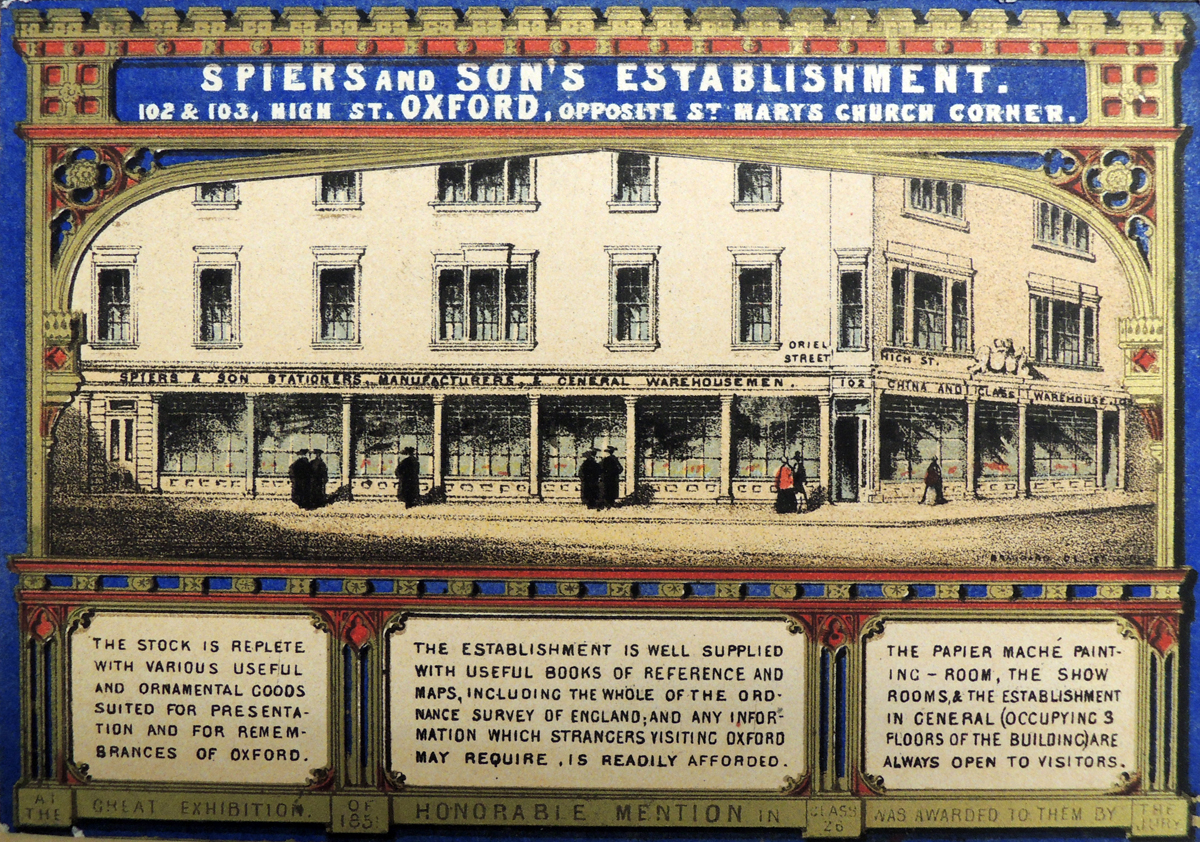 SPIERS AND SON'S ESTABLISHMENT.
102 & 103, HIGH ST. OXFORD, OPPOSITE ST MARY'S CHURCH CORNER.
ORIEL
STREET
HIGH ST.
SPIERS & SON STATIONERS, MANUFACTURERS, & GENERAL WAREHOUSEMEN.
102
CHINA AND GLASS WAREHOUSE. 103
THE STOCK IS REPLETE
WITH VARIOUS USEFUL
AND ORNAMENTAL GOODS
SUITED FOR PRESENTA-
TION AND FOR REMEM-
BRANCES OF OXFORD.
THE ESTABLISHMENT IS WELL SUPPLIED
WITH USEFUL BOOKS OF REFERENCE AND
MAPS, INCLUDING THE WHOLE OF THE ORD-
NANCE SURVEY OF ENGLAND; AND ANY INFOR-
MATION WHICH STRANGERS VISITING OXFORD
MAY REQUIRE, IS READILY AFFORDED.
THE PAPIER MACHÉ PAINT-
ING-ROOM, THE SHOW
ROOMS, & THE ESTABLISHMENT
IN GENERAL (OCCUPYING 3
FLOORS OF THE BUILDING) ARE
ALWAYS OPEN TO VISITORS.
AT THE GREAT EXHIBITION. OF 1851 HONORABLE MENTION IN CLASS 26 WAS AWARDED TO THEM BY THE JURY